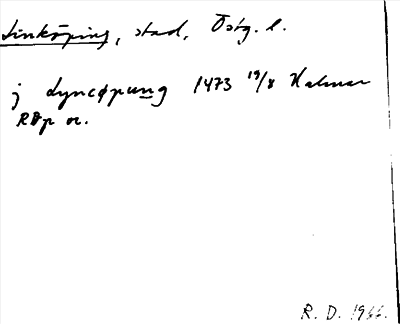 Linköping, stad, Östg. l.
j Lyncøpung 1473 19/8 Kalmar
RDp or.
R. D. 1966.